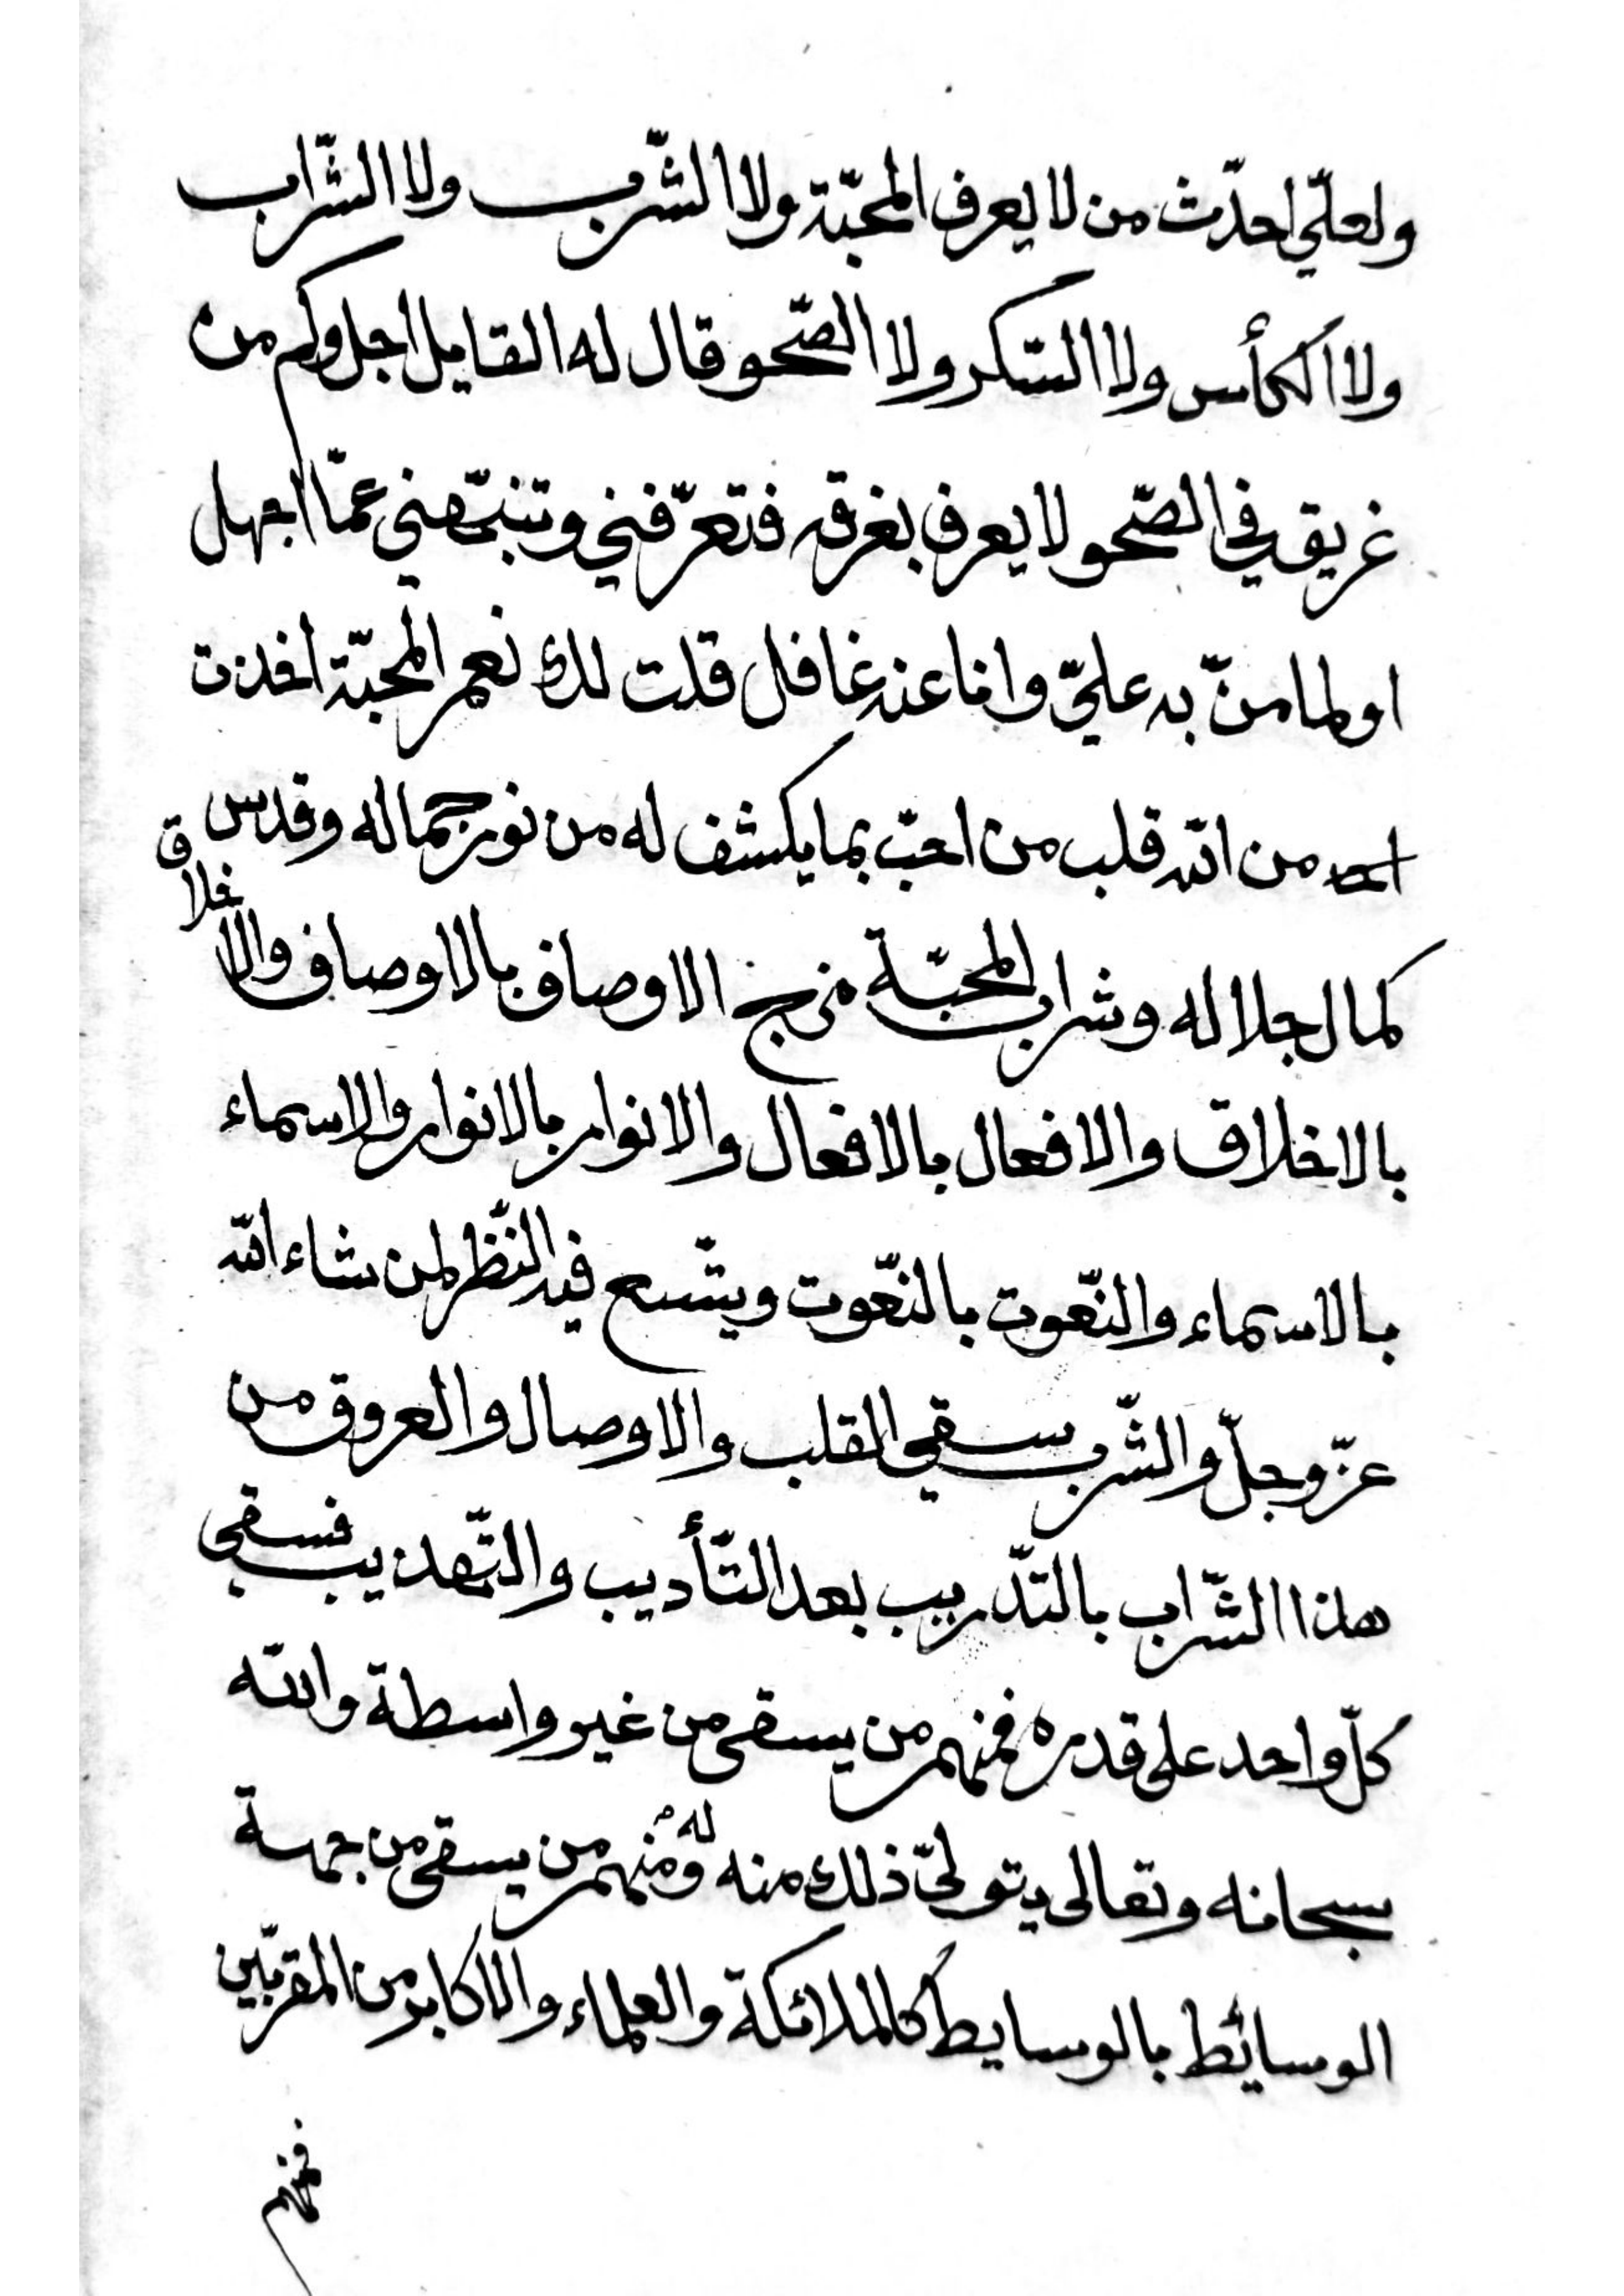 ولعلّي احدّث من لا يعرف المحبّة ولا الشّرب ولا الشّراب
ولا الكأس ولا السّكر ولا الصّحو قال له القايل اجل وكم من
غريق في الصّحو لا يعرف بغرقه فتعرّفني وتنبّهني عمّا اجهل
او لما منّ به عليّ وانا عنه غافل قلت لك نعم المحبّة اخذت
من الله قلب من احبّ بما يكشف له من نور جماله وقدس
كمال جلاله وشراب المحبّة مزج الاوصاف بالاوصاف والاخلاق
بالاخلاق والافعال بالافعال والانوار بالانوار والاسماء
بالاسماء والنّعوت بالنّعوت ويتّسع فيه النّظر لمن شاء الله
عزّ وجلّ والشّرب سقي القلب والاوصال والعروق من
هذا الشّراب بالتّدريب بعد التّأديب والتّهذيب فسقي
كلّ واحد على قدره فمنهم من يسقى من غير واسطة والله
سبحانه وتعالى يتولّى ذلك منه له ومنهم من يسقى من جهة
الوسائط بالوسايط كالملائكة والعلماء والاكابر من المقرّبين
فمنهم